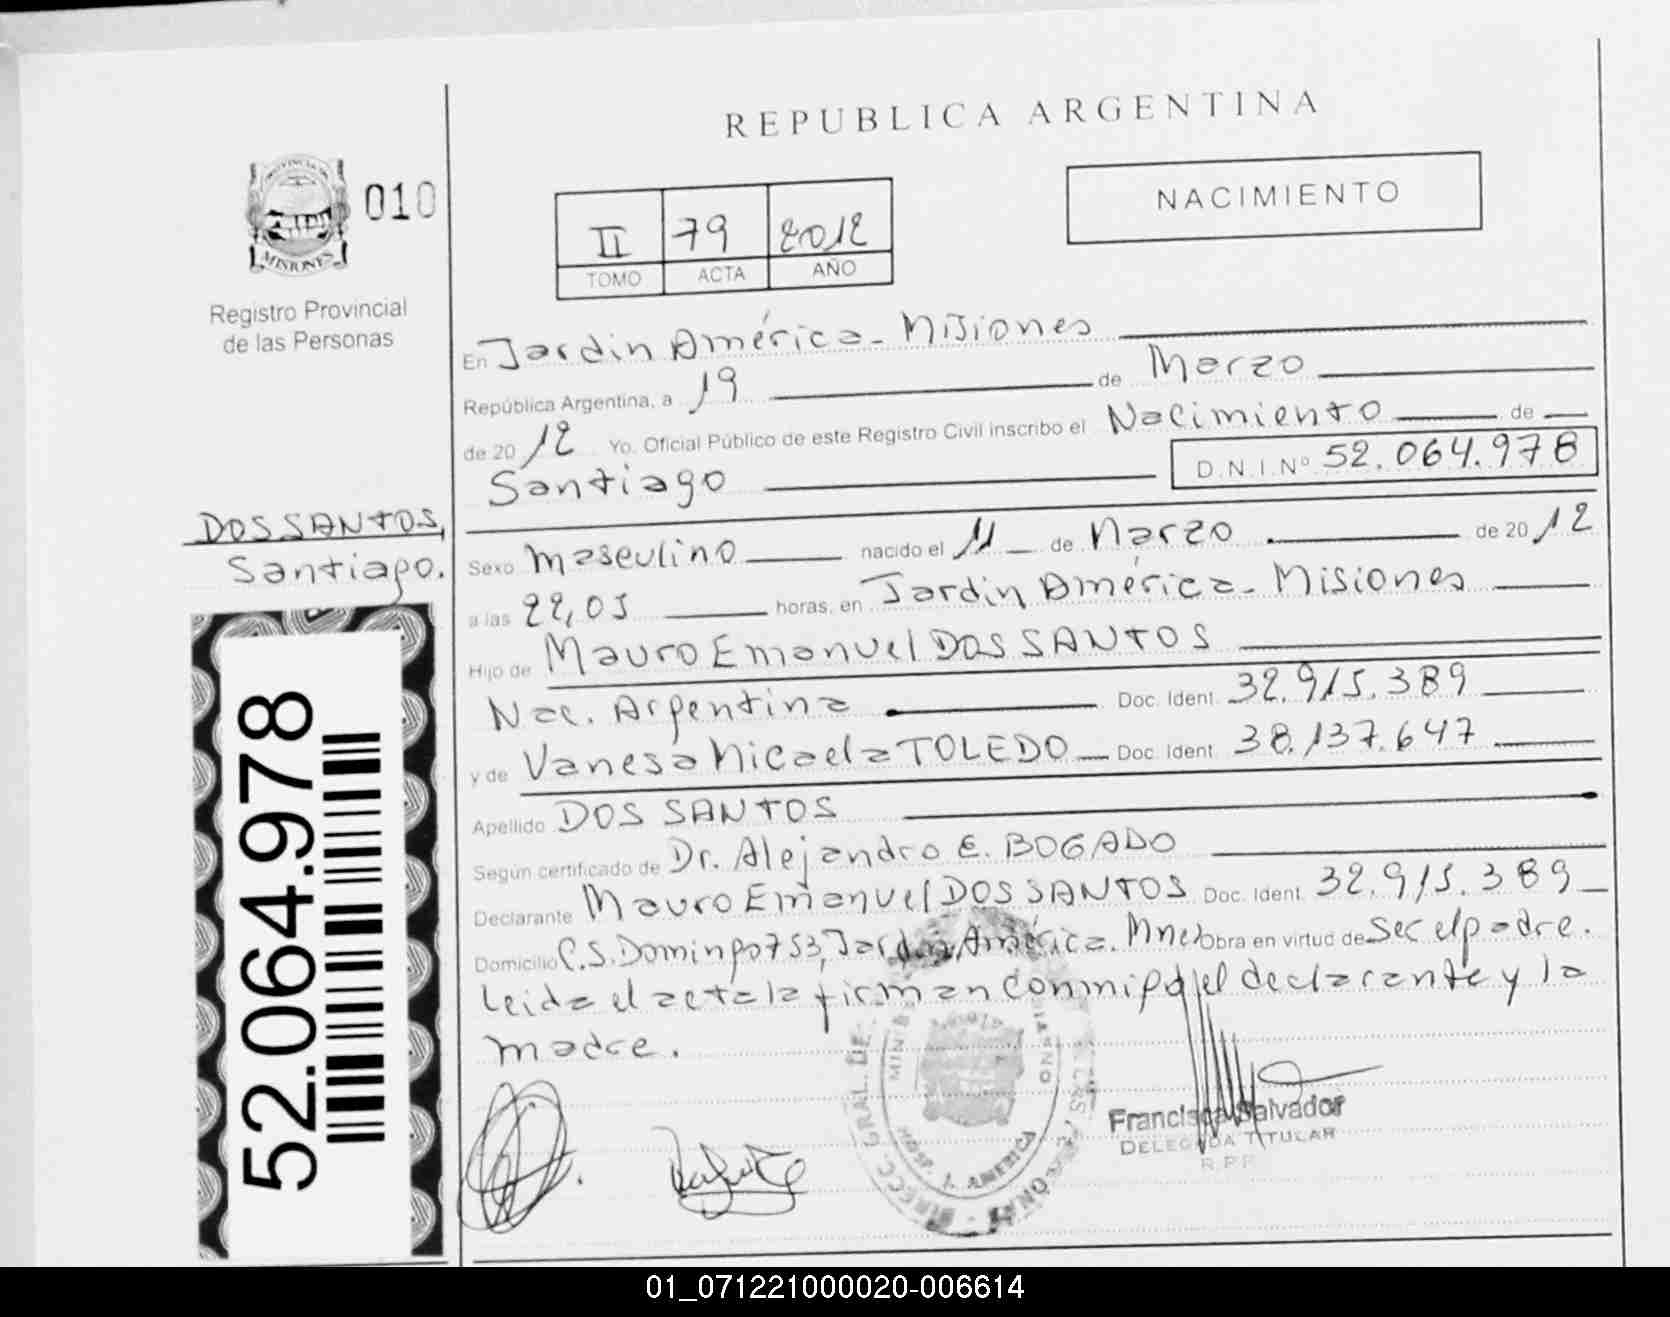 REPUBLICA ARGENTINA
MISIONES
010
Registro Provincial
de las Personas
II 79 2012
TOMO ACTA AÑO
NACIMIENTO
En Jardin América - Misiones
República Argentina, a 19 de Marzo
de 2012 Yo. Oficial Público de este Registro Civil inscribo el Nacimiento de
Santiago D.N.I.Nº 52.064.978
DOS SANTOS,
Santiago.
Sexo Masculino nacido el 11 de Marzo de 2012
a las 22,05 horas, en Jardin América - Misiones
Hijo de Mauro Emanuel DOS SANTOS
Nac. Argentina Doc. Ident. 32.915.389
y de Vanesa Micaela TOLEDO Doc. Ident. 38.137.647
Apellido DOS SANTOS
Según certificado de Dr. Alejandro E. BOGADO
Declarante Mauro Emanuel DOS SANTOS Doc. Ident. 32.915.389
Domicilio C.S. Domingo 753, Jardin América. Mnes Obra en virtud de Ser el padre.
Leida el acta la firman conmigo el declarante y la
madre.
52.064.978
DIRECC. GRAL. DE
HOSP. J. AMERICA
Francisca Salvador
DELEGADA TITULAR
R.P.P.
01_071221000020-006614